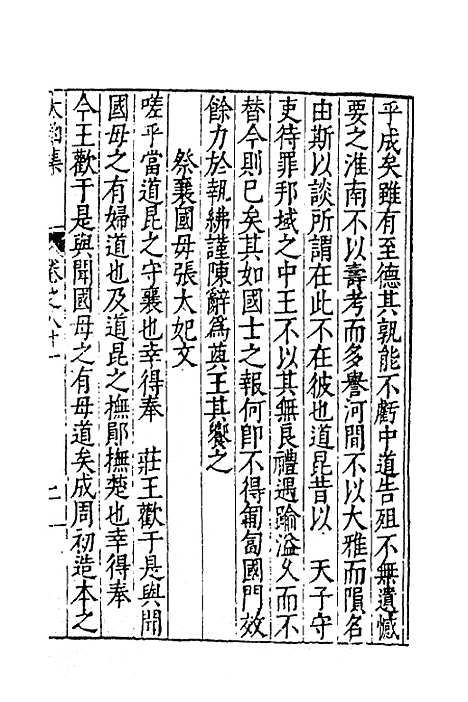 平成矣雖有至德其孰能不虧中道告殂不無遺憾
要之淮南不以壽考而多譽河間不以大雅而隕名
由斯以談所謂在此不在彼也道昆昔以　天子守
吏待罪邦域之中王不以其無良禮遇踰溢久而不
替今則已矣其如國士之報何即不得匍匐國門效
餘力於執紼謹陳辭為奠王其饗之
祭襄國毋張太妃文
嗟乎當道昆之守襄也幸得奉　莊王歡于是與聞
國毋之有婦道也及道昆之撫鄖撫楚也幸得奉
今王歡于是與聞國毋之有母道矣成周初造本之
太函集　卷之八十一　二